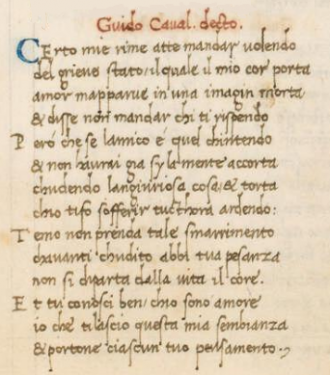 Guido Caval. decto.
CErto mie rime atte mandar volendo
del grieve stato, il quale il mio cor porta
amor mapparve in una imagin morta
& disse non mandar chi ti rispendo
Pero che se lamico e quel chintendo
& non havrai gia sy la mente accorta
chudendo langiuriosa cosa & torta
chio tifo sofferir tucthora ardendo:
Temo non prenda tale smarrimento
chavanti chudito abbi tua pesanza
non si diparta dalla vita il core.
Et tu conosci ben, chio sono amore
io che tilascio questa mia sembianza
& portone ciascun tuo pensamento.